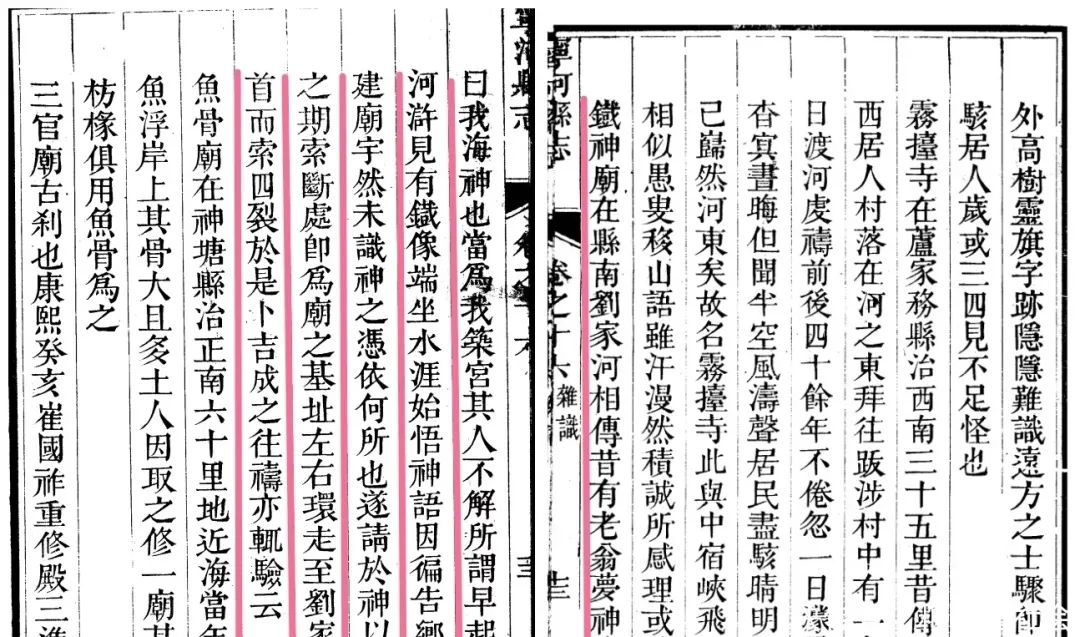 外高樹靈旗字跡隱隱難識遠方之士驟
駭居人歲或三四見不足怪也
霧擡寺在蘆家務縣治西南三十五里昔傳
西居人村落在河之東拜往跋涉村中有一
日渡河虔禱前後四十餘年不倦忽一日濛
杳冥晝晦但聞半空風濤聲居民盡駭晴明
已巋然河東矣故名霧擡寺此與中宿峽飛
相似愚叟移山語雖汗漫然積誠所感理或
鐵神廟在縣南劉家河相傳昔有老翁夢神
寧河縣志 卷之十六 雜識 十三
寧河縣志 卷之十六
曰我海神也當爲我築宮其人不解所謂早起
河滸見有鐵像端坐水涯始悟神語因徧告鄉
建廟宇然未識神之憑依何所也遂請於神以
之期索斷處卽爲廟之基址左右環走至劉家
首而索四裂於是卜吉成之往禱亦輒驗云
魚骨廟在神塘縣治正南六十里地近海當年
魚浮岸上其骨大且多土人因取之修一廟其
枋椽俱用魚骨爲之
三官廟古刹也康熙癸亥崔國祚重修殿三進